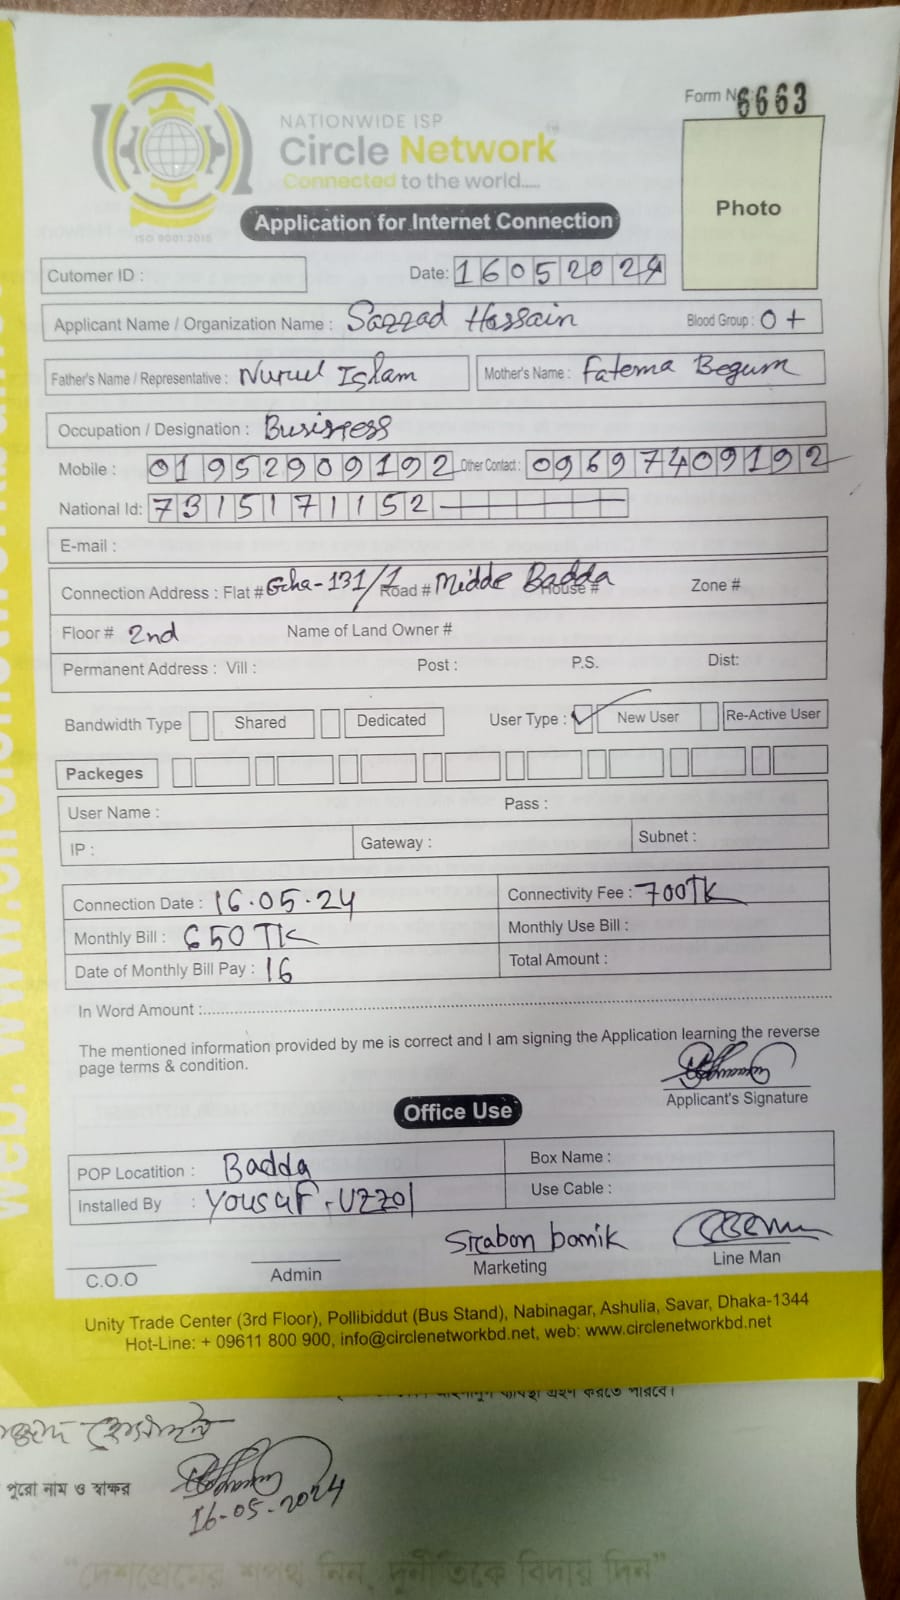 Form No 6663
NATIONWIDE ISP
Circle Network
Connected to the world.....
ISO 9001:2015
Photo
Application for Internet Connection
Cutomer ID :
Date: 16052024
Applicant Name / Organization Name : Sazzad Hossain Blood Group : O+
Father's Name / Representative : Nurul Islam Mother's Name : Fatema Begum
Occupation / Designation : Business
Mobile : 01952909192 Other Contact : 09697409192
National Id: 7315171152
E-mail :
Connection Address : Flat # Gha-131/1 Road # Midde Badda House # Zone #
Floor # 2nd Name of Land Owner #
Permanent Address : Vill : Post : P.S. Dist:
Bandwidth Type Shared Dedicated User Type : New User Re-Active User
Packeges
User Name : Pass :
IP : Gateway : Subnet :
Connection Date : 16.05.24 Connectivity Fee : 700TK
Monthly Bill : 650 TK Monthly Use Bill :
Date of Monthly Bill Pay : 16 Total Amount :
In Word Amount :
The mentioned information provided by me is correct and I am signing the Application learning the reverse
page terms & condition.
Applicant's Signature
Office Use
POP Locatition : Badda Box Name :
Installed By : Yousuf - Uzzol Use Cable :
Srabon bomik
C.O.O Admin Marketing Line Man
Unity Trade Center (3rd Floor), Pollibiddut (Bus Stand), Nabinagar, Ashulia, Savar, Dhaka-1344
Hot-Line: + 09611 800 900, info@circlenetworkbd.net, web: www.circlenetworkbd.net
পুরো নাম ও স্বাক্ষর
16-05-2024
"দেশপ্রেমের শপথ নিন, দুর্নীতিকে বিদায় দিন"